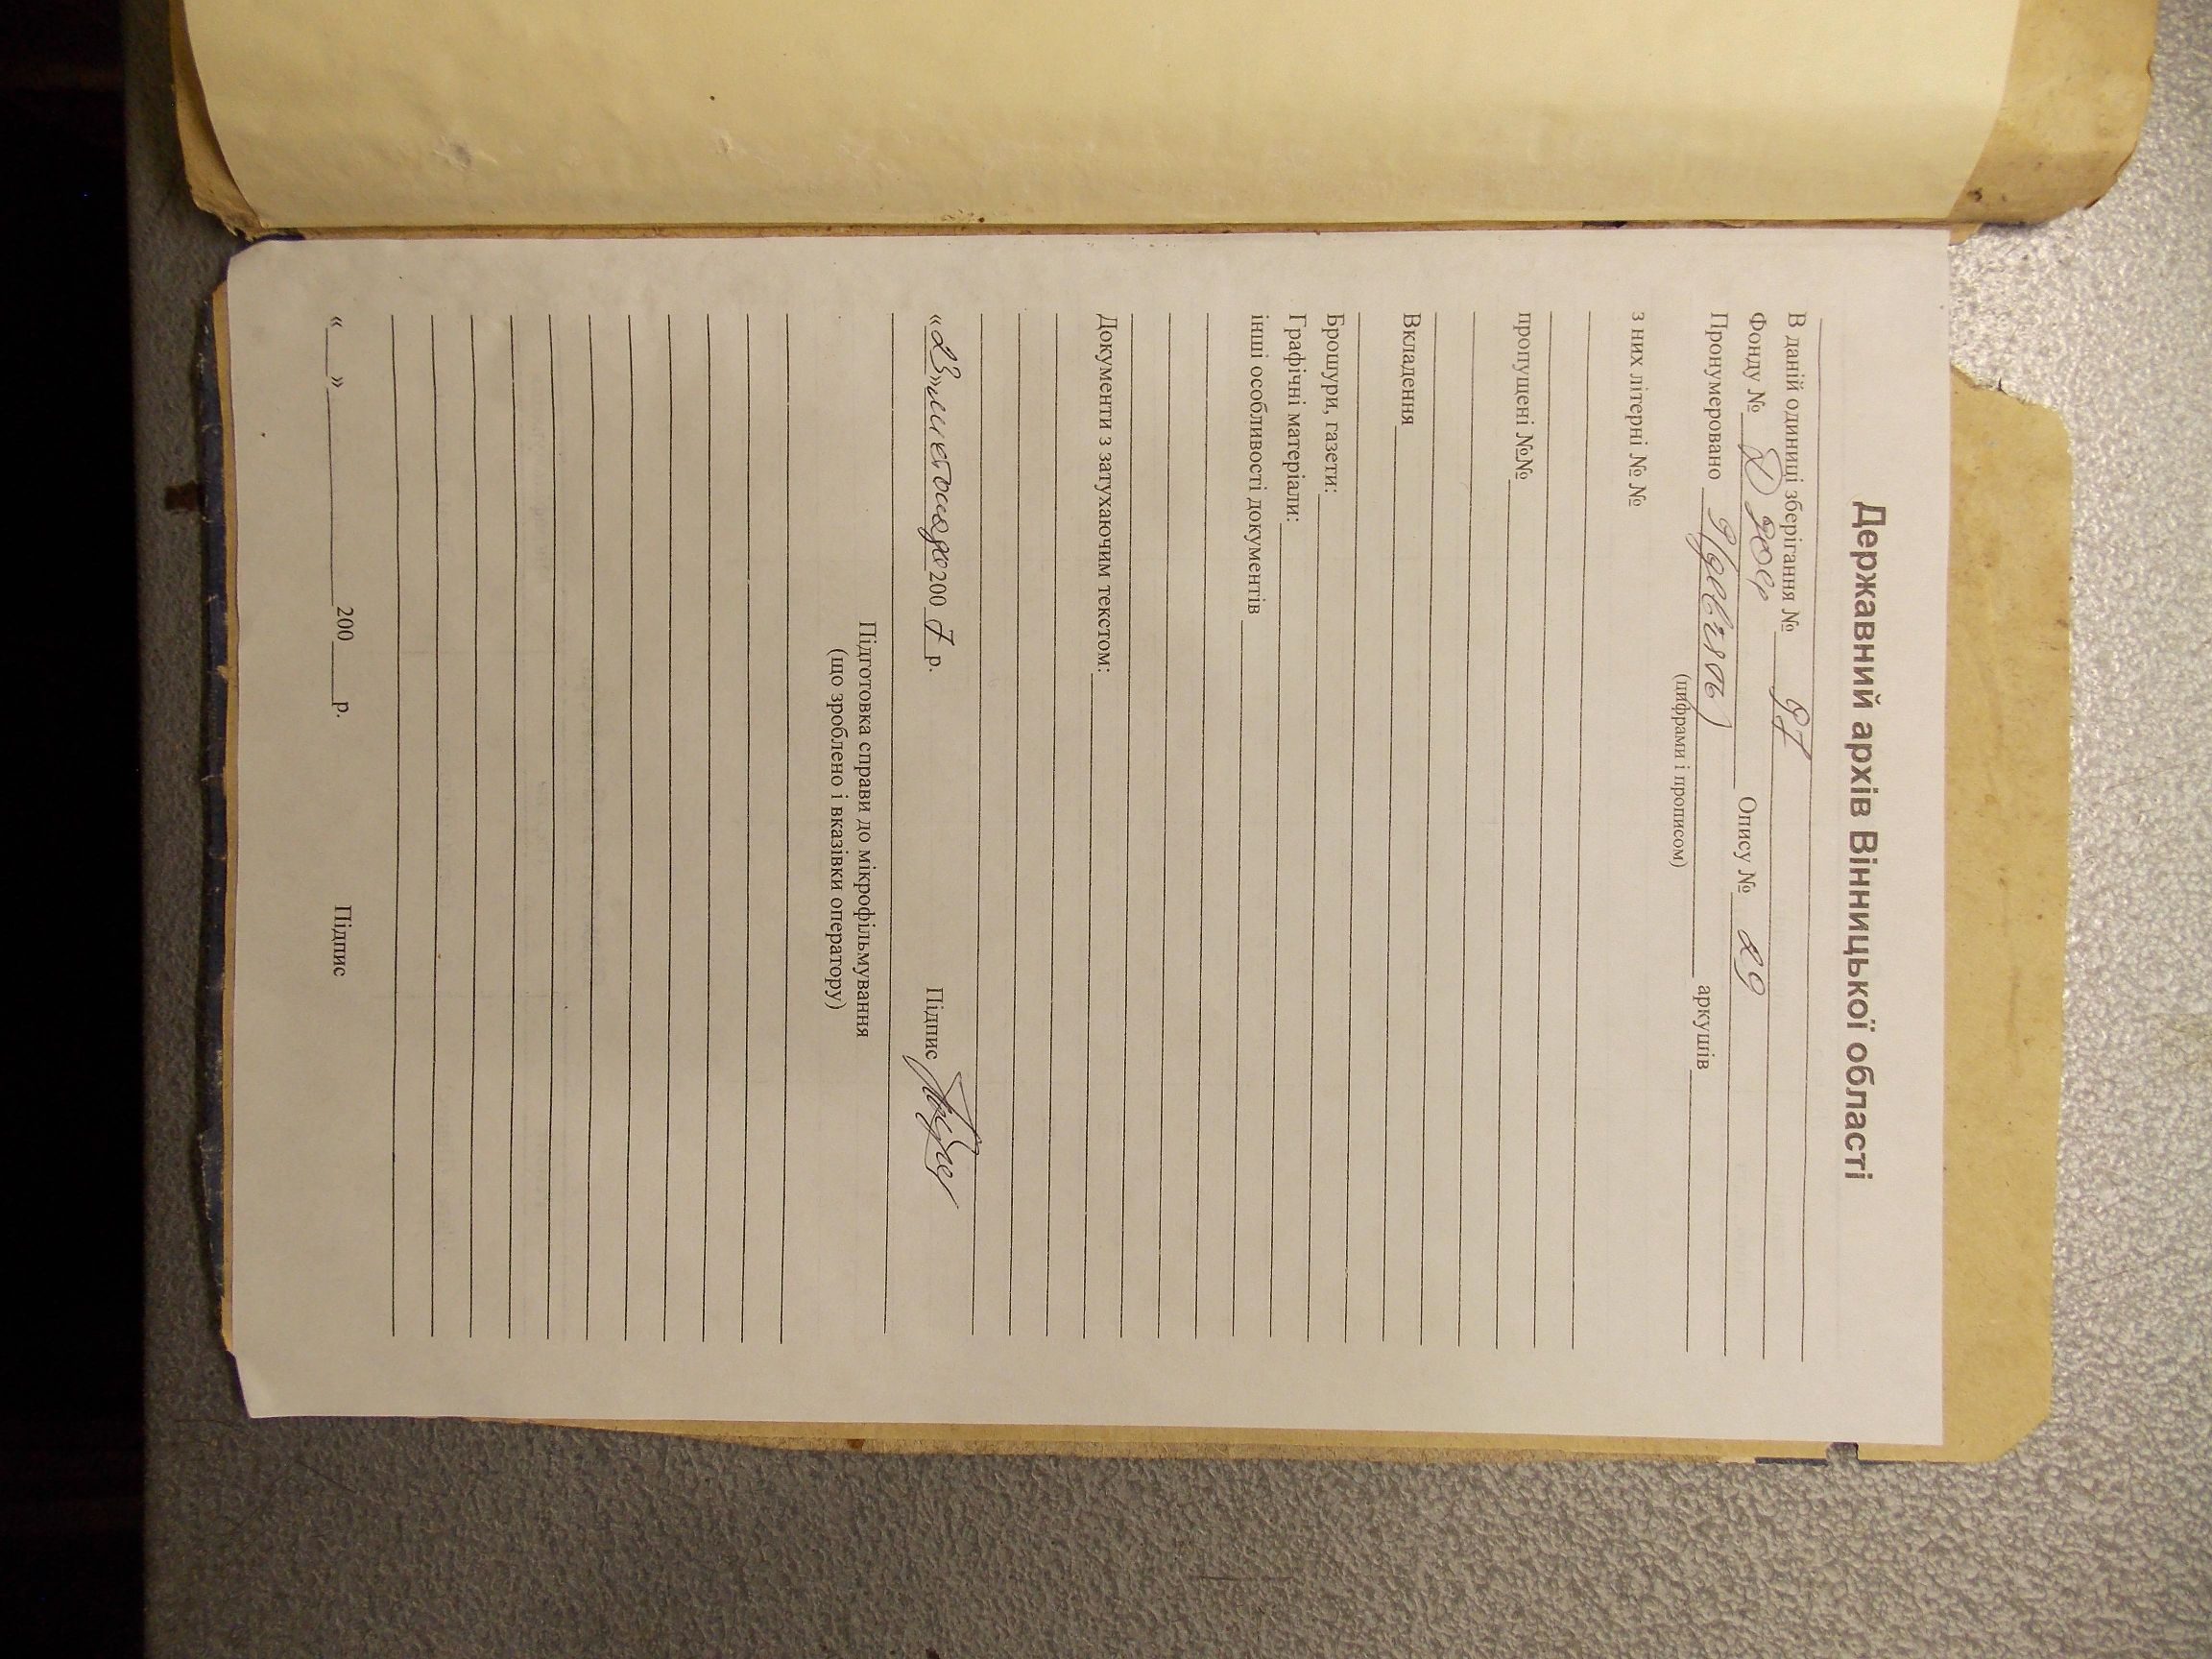 Державний архів Вінницької області
В даній одиниці зберігання № 97
Фонду № Д 904 Опису № 29
Пронумеровано 9 (дев'ять) аркушів
(цифрами і прописом)
з них літерні № №
пропущені №№
Вкладення
Брошури, газети:
Графічні матеріали:
інші особливості документів
Документи з затухаючим текстом:
«23» листопада 2007 р. Підпис
Підготовка справи до мікрофільмування
(що зроблено і вказівки оператору)
« » 200 р. Підпис